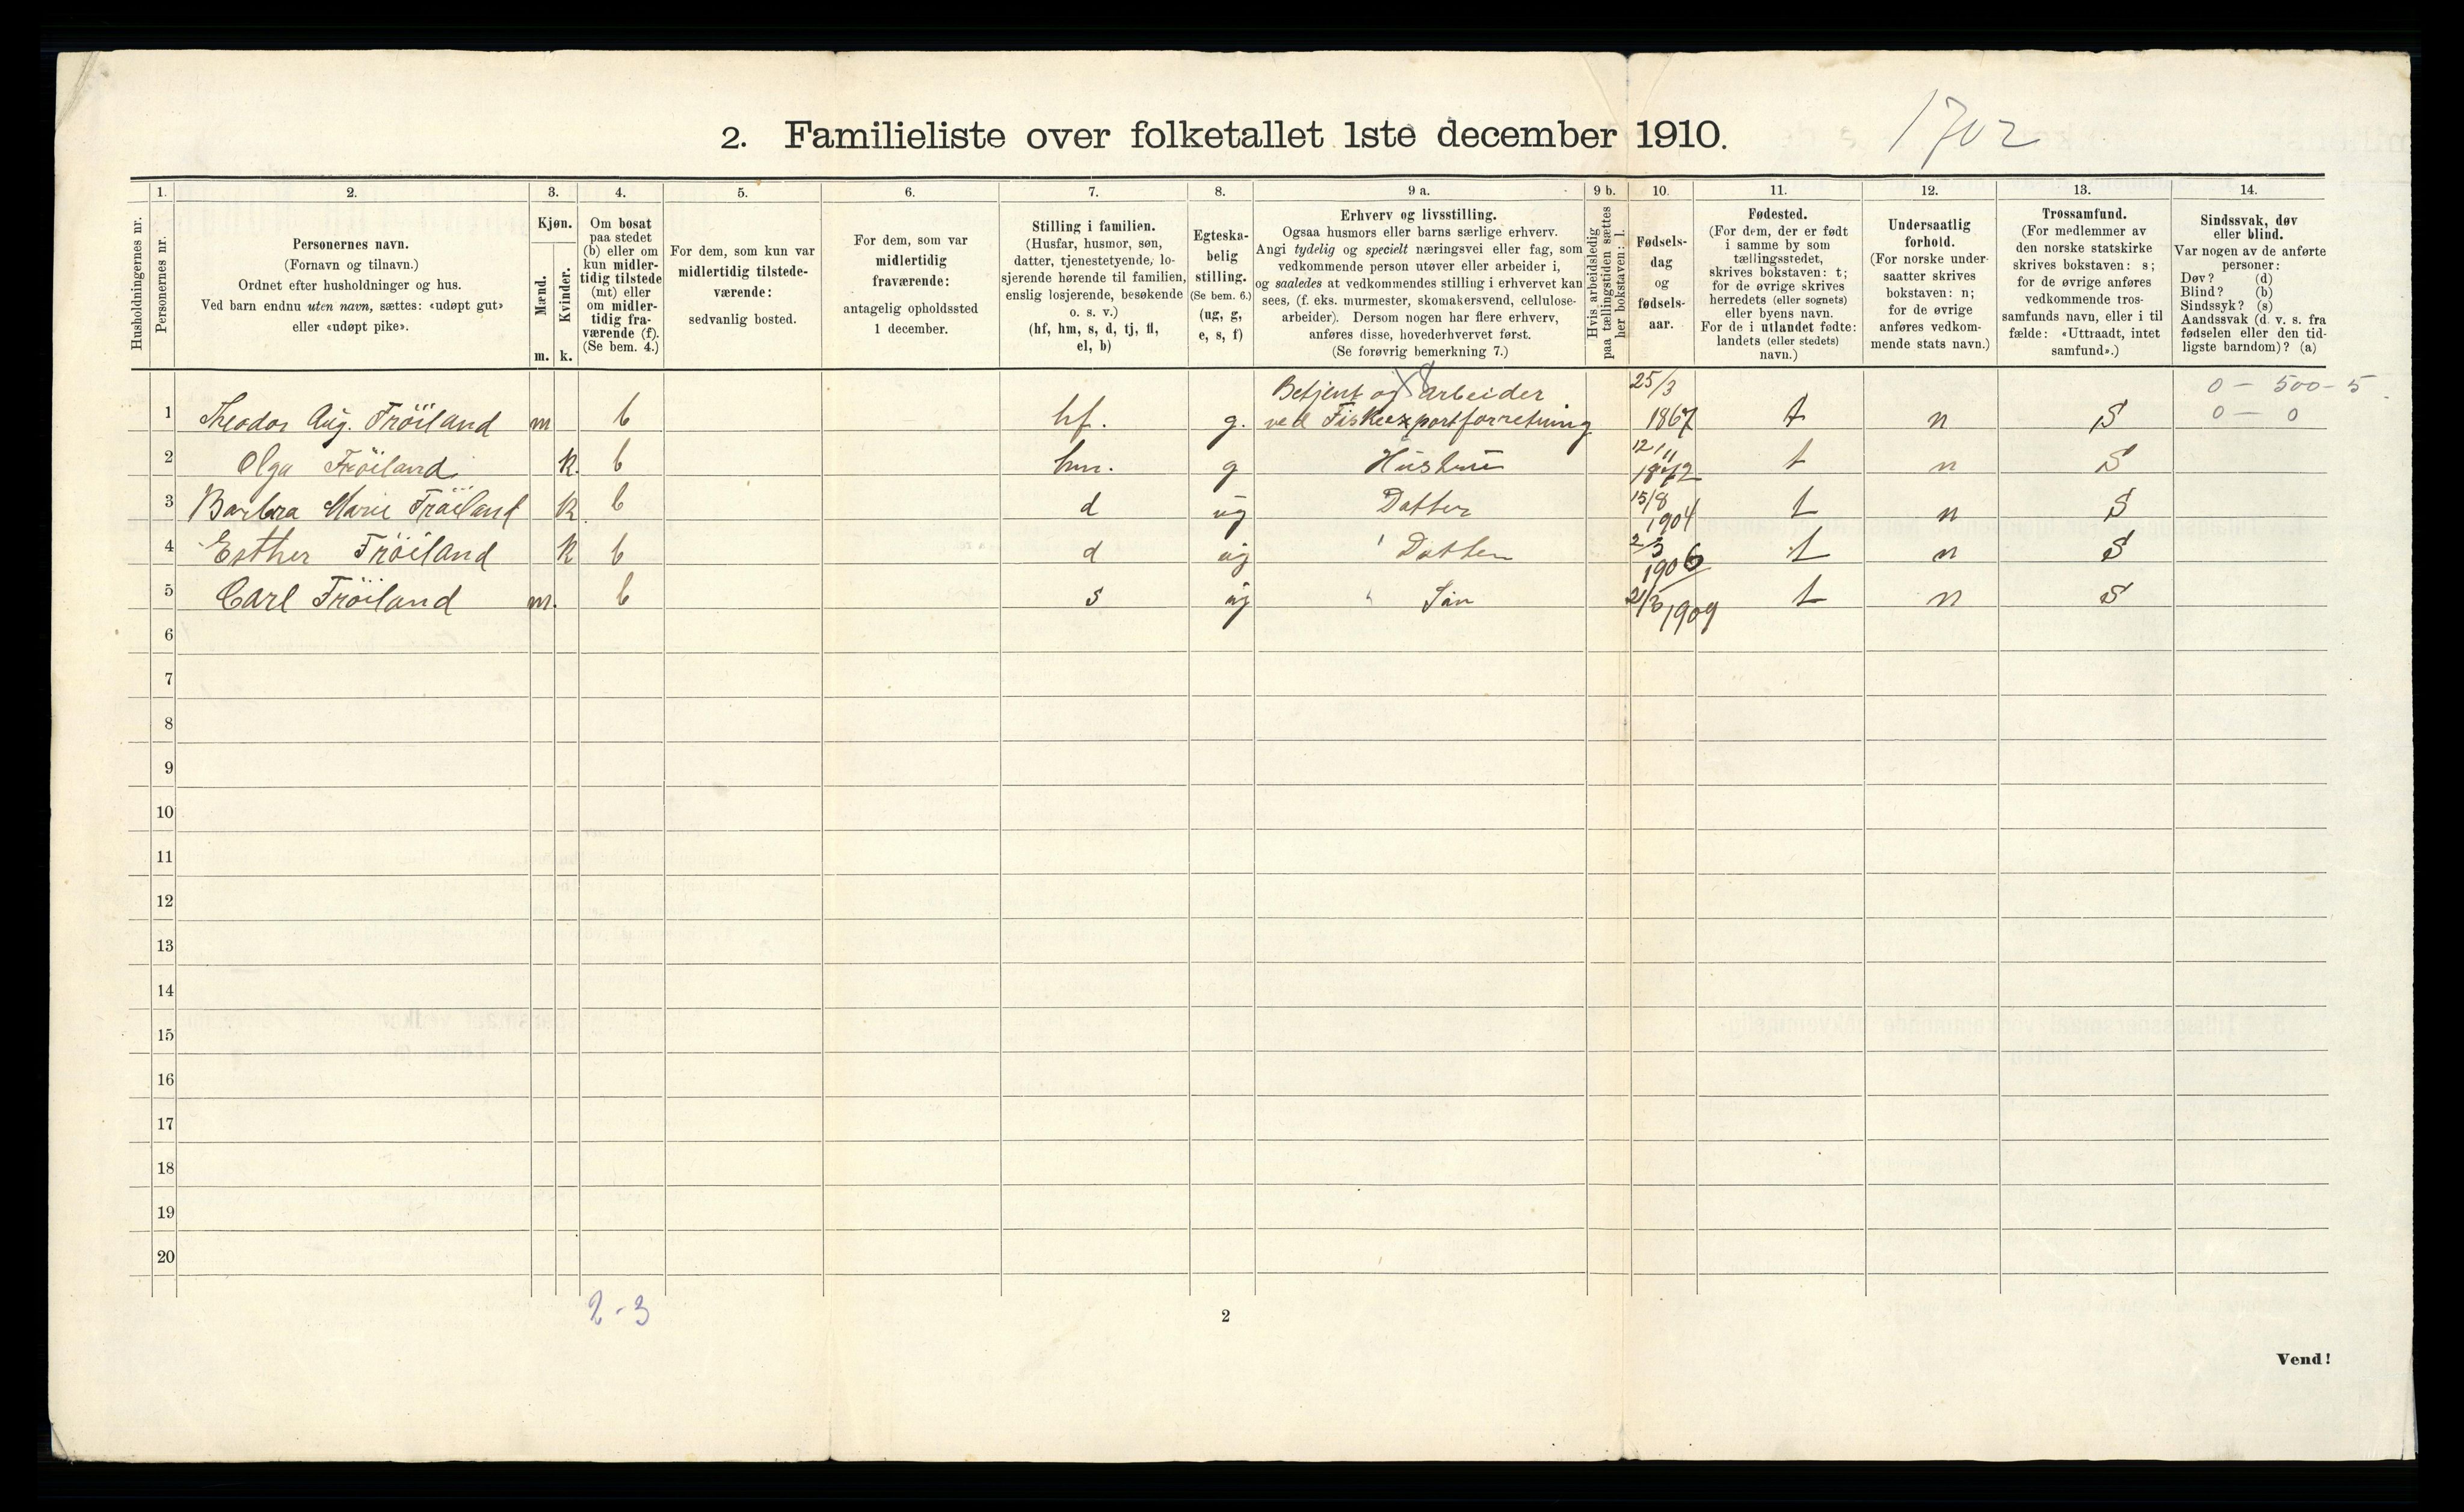 2. Familieliste over folketallet 1ste december 1910.
1702
Husholdningernes nr.
1.
Personernes nr.
2.
Personernes navn.
(Fornavn og tilnavn.)
Ordnet efter husholdninger og hus.
Ved barn endnu uten navn, sættes: «udøpt gut»
eller «udøpt pike».
3.
Kjøn.
Mænd.
Kvinder.
m. k.
4.
Om bosat
paa stedet
(b) eller om
kun midler-
tidig tilstede
(mt) eller
om midler-
tidig fra-
værende (f).
(Se bem. 4.)
5.
For dem, som kun var
midlertidig tilstede-
værende:
sedvanlig bosted.
6.
For dem, som var
midlertidig
fraværende:
antagelig opholdssted
1 december.
7.
Stilling i familien.
(Husfar, husmor, søn,
datter, tjenestetyende, lo-
sjerende hørende til familien,
enslig losjerende, besøkende
o. s. v.)
(hf, hm, s, d, tj, fl,
el, b)
8.
Egteska-
belig
stilling.
(Se bem. 6.)
(ug, g,
e, s, f)
9 a.
Erhverv og livsstilling.
Ogsaa husmors eller barns særlige erhverv.
Angi tydelig og specielt næringsvei eller fag, som
vedkommende person utøver eller arbeider i,
og saaledes at vedkommendes stilling i erhvervet kan
sees, (f. eks. murmester, skomakersvend, cellulose-
arbeider). Dersom nogen har flere erhverv,
anføres disse, hovederhvervet først.
(Se forøvrig bemerkning 7.)
9 b.
Hvis arbeidsledig
paa tællingstiden sættes
her bokstaven: l.
10.
Fødsels-
dag
og
fødsels-
aar.
11.
Fødested.
(For dem, der er født
i samme by som
tællingsstedet,
skrives bokstaven: t;
for de øvrige skrives
herredets (eller sognets)
eller byens navn.
For de i utlandet fødte:
landets (eller stedets)
navn.)
12.
Undersaatlig
forhold.
(For norske under-
saatter skrives
bokstaven: n;
for de øvrige
anføres vedkom-
mende stats navn.)
13.
Trossamfund.
(For medlemmer av
den norske statskirke
skrives bokstaven: s;
for de øvrige anføres
vedkommende tros-
samfunds navn, eller i til
fælde: «Uttraadt, intet
samfund».)
14.
Sindssvak, døv
eller blind.
Var nogen av de anførte
personer:
Døv? (d)
Blind? (b)
Sindssyk? (s)
Aandssvak (d. v. s. fra
fødselen eller den tid-
ligste barndom)? (a)
Betjent og Arbeider 25/3 0 - 500 - 5
1 Theodor Aug. Fröiland m b hf. g. ved Fiskeexportforretning 1867 t n S 0 - 0
2 Olga Fröiland k. b hm. g Hustru 12/11 1872 t n S
3 Barbra Marie Fröiland k b d ug Datter 15/8 1904 t n S
4 Esther Fröiland k b d ug Datter 2/3 1906 t n S
5 Carl Fröiland m. b s ug Sön 21/5 1909 t n S
6
7
8
9
10
11
12
13
14
15
16
17
18
19
20
2 - 3
2
Vend!